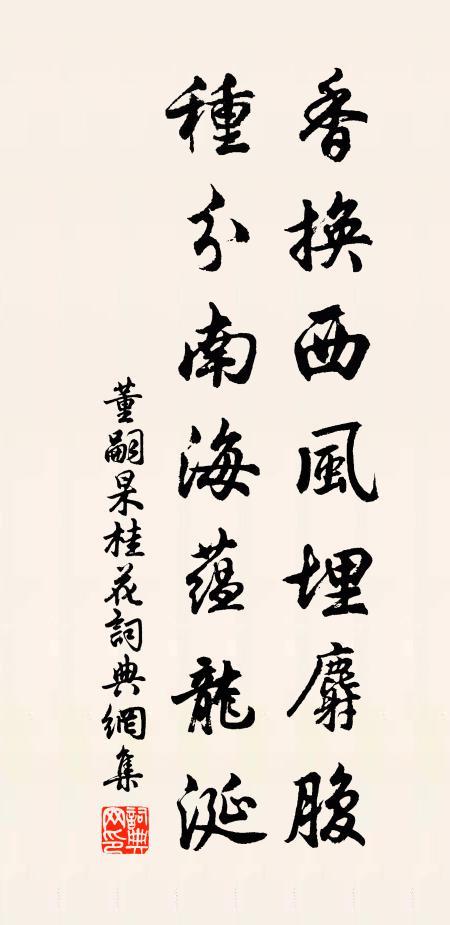 香換西風埋麝腹
種分南海蘊龍涎
董嗣杲桂花詞典網集
詞典網印